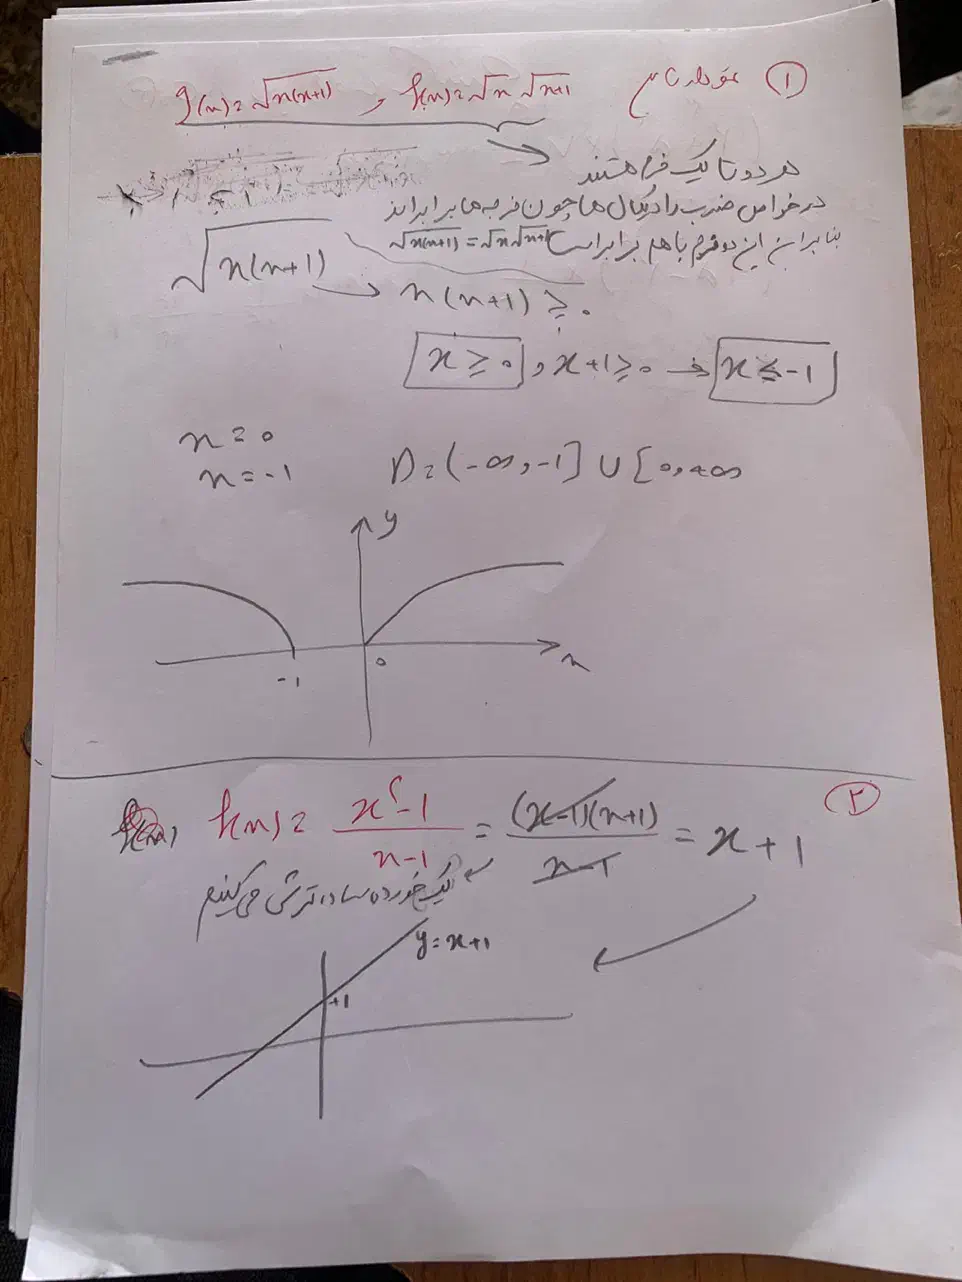 ① نمودار تابع f(x) = √x √x+1 و g(x) = √x(x+1)
هر دو تا یک فرم هستند
در خواص ضرب رادیکال ها چون فرجه ها برابراند
بنابراین این دو فرم با هم برابر است √x(x+1) = √x √x+1
√x(x+1) → x(x+1) ≥ 0
x ≥ 0 , x+1 ≥ 0 → x ≤ -1
x = 0
x = -1
D = (-∞, -1] ∪ [0, +∞
y
-1 0 x
②
f(x) = x²-1 / x-1 = (x-1)(x+1) / x-1 = x+1
یک خورده ساده ترش می کنیم
y = x+1
+1